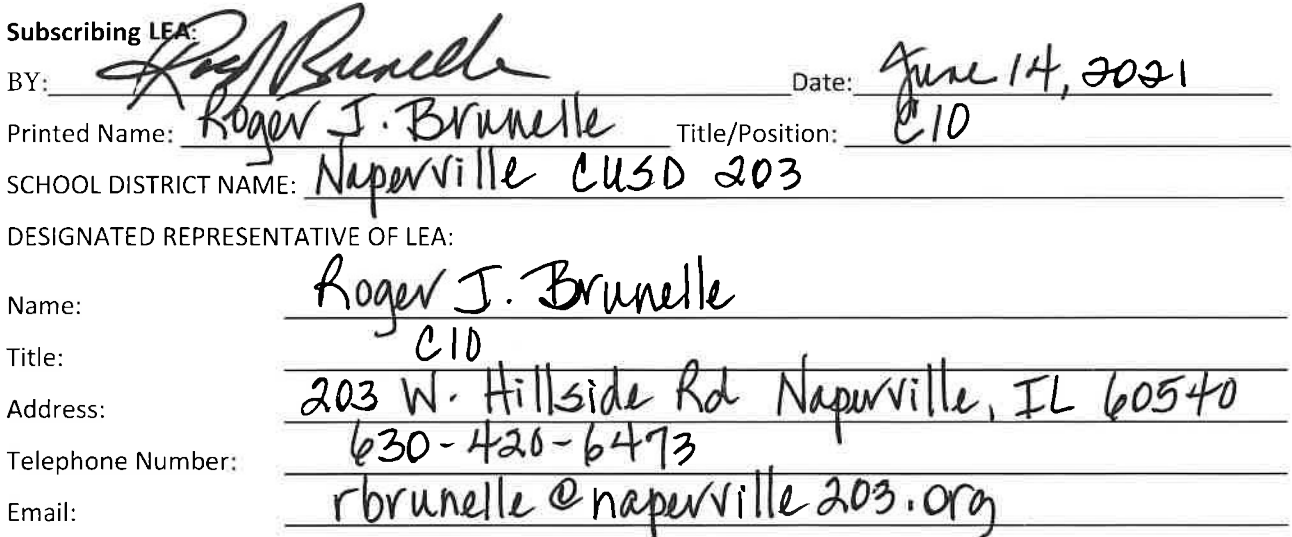 Subscribing LEA:
BY: Roger J Brunelle Date: June 14, 2021
Printed Name: Roger J. Brunelle Title/Position: CIO
SCHOOL DISTRICT NAME: Naperville CUSD 203
DESIGNATED REPRESENTATIVE OF LEA:
Name: Roger J. Brunelle
Title: CIO
Address: 203 W. Hillside Rd Naperville, IL 60540
Telephone Number: 630-420-6473
Email: rbrunelle@naperville203.org